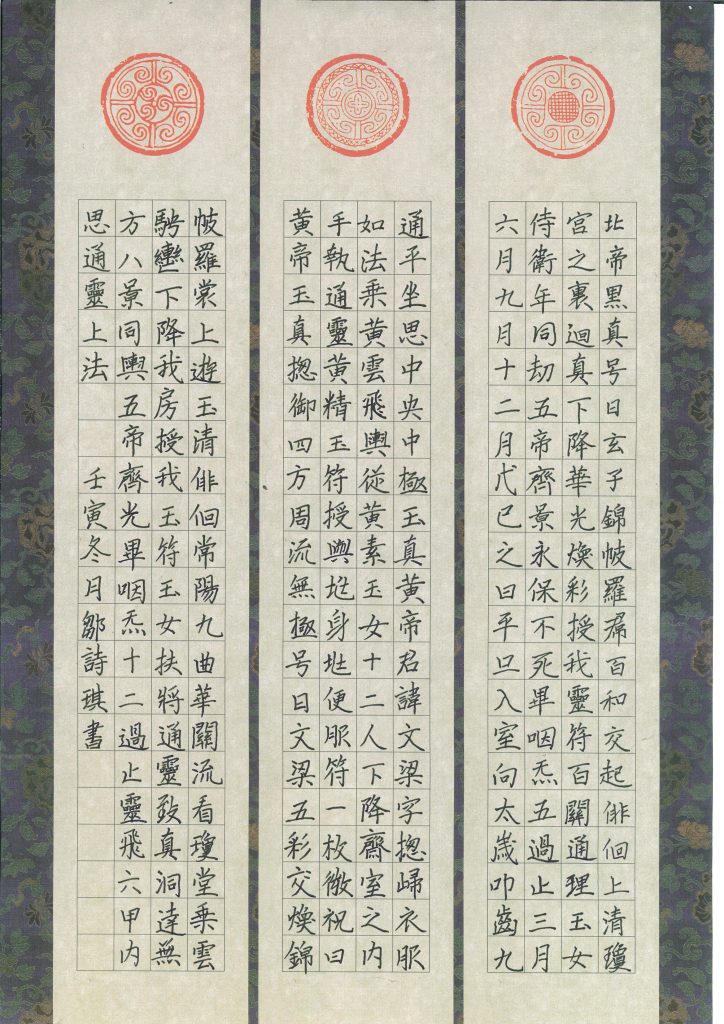 北帝黒真号曰玄子錦帔羅帬百和交起俳佪上清瓊
宮之裏迴真下降華光煥彩授我靈符百關通理玉女
侍衛年同劫五帝齊景永保不死畢咽炁五過止三月
六月九月十二月戊己之日平旦入室向太歲叩齒九
通平坐思中央中極玉真黄帝君諱文梁字揔歸衣服
如法乗黄雲飛輿從黄素玉女十二人下降齋室之内
手執通靈黄精玉符授與垗身垗便服符一枚微祝曰
黄帝玉真揔御四方周流無極号曰文梁五彩交煥錦
帔羅裳上遊玉清俳佪常陽九曲華關流看瓊堂乗雲
騁轡下降我房授我玉符玉女扶將通靈致真洞達無
方八景同輿五帝齊光畢咽炁十二過止靈飛六甲内
思通靈上法 壬寅冬月鄒詩琪書